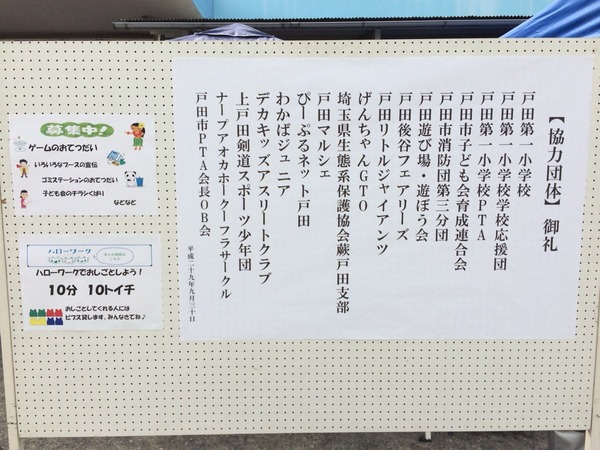 【協力団体】御礼
戸田第一小学校
戸田第一小学校学校応援団
戸田第一小学校PTA
戸田市子ども会育成連合会
戸田市消防団第三分団
戸田遊び場・遊ぼう会
戸田後谷フェアリーズ
戸田リトルジャイアンツ
げんちゃんGTO
埼玉県生態系保護協会蕨戸田支部
戸田マルシェ
ぴーぷるネット戸田
わかばジュニア
デカキッズアスリートクラブ
上戸田剣道スポーツ少年団
ナープアオカホークーフラサークル
戸田市PTA会長OB会
平成二十九年九月三十日
募集中!
ゲームのおてつだい
いろいろなブースの宣伝
ゴミステーションのおてつだい
子ども会のチラシくばり
などなど
ハローワーク
ハローワークでおしごとしよう!
10分 10トイチ
おしごとしてくれる人には
ビブス貸します。みんなきてね♪